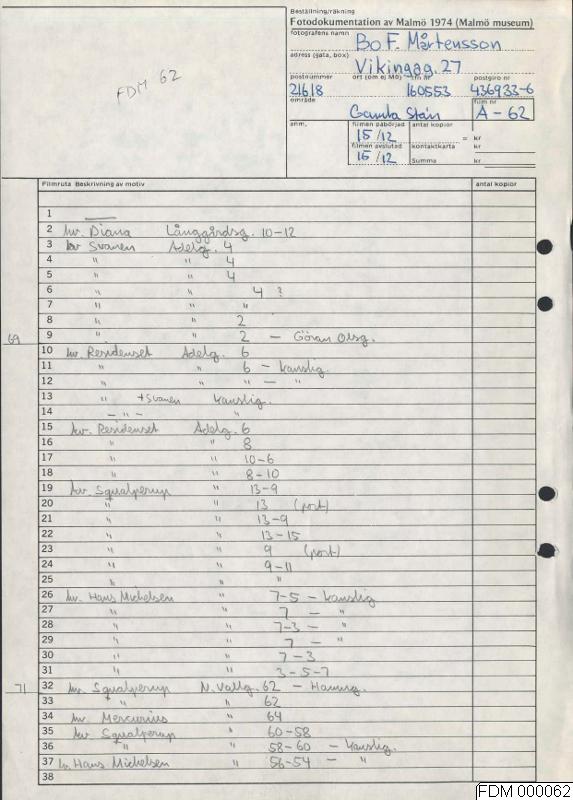 FDM 62
Beställning/räkning
Fotodokumentation av Malmö 1974 (Malmö museum)
fotografens namn
Bo F. Mårtensson
adress (gata, box)
Vikingag. 27
postnummer ort (om ej Mö) tfn nr postgiro nr
21618 160553 436933-6
område film nr
Gamla Stan A-62
anm. filmen påbörjad antal kopior
15/12 = kr
filmen avslutad kontaktkarta kr
15/12 Summa kr
Filmruta Beskrivning av motiv antal kopior
1 —
2 kv. Diana Långgårdsg. 10-12
3 kv Svanen Adelg. 4
4 " " 4
5 " " 4
6 " " 4 ?
7 " " "
8 " " 2
9 " " 2 - Göran Olsg.
69
10 kv. Residenset Adelg. 6
11 " " 6 - Kanslig.
12 " " " - "
13 " + Svanen Kanslig.
14 - " - "
15 kv. Residenset Adelg. 6
16 " " 8
17 " " 10-6
18 " " 8-10
19 kv. Sqvalperup " 13-9
20 " " 13 (port)
21 " " 13-9
22 " " 13-15
23 " " 9 (port)
24 " " 9-11
25 " " "
26 kv. Hans Michelsen " 7-5 - Kanslig
27 " " 7 - "
28 " " 7-3 - "
29 " " 7 - "
30 " " 7-3
31 " " 3-5-7
71
32 kv. Sqvalperup N. Vallg. 62 - Hamng.
33 " " 62
34 kv. Mercurius " 64
35 kv Sqvalperup " 60-58
36 " " 58-60 - Kanslig.
37 kv. Hans Michelsen " 56-54 - "
38
FDM 000062